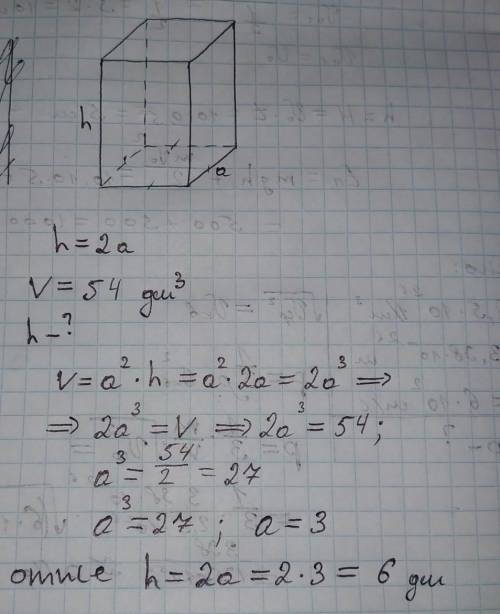 h
a
h = 2a
V = 54 дм³
h - ?
V = a² · h = a² · 2a = 2a³ ⟹
⟹ 2a³ = V ⟹ 2a³ = 54;
a³ = 54/2 = 27
a³ = 27 ; a = 3
отже h = 2a = 2 · 3 = 6 дм